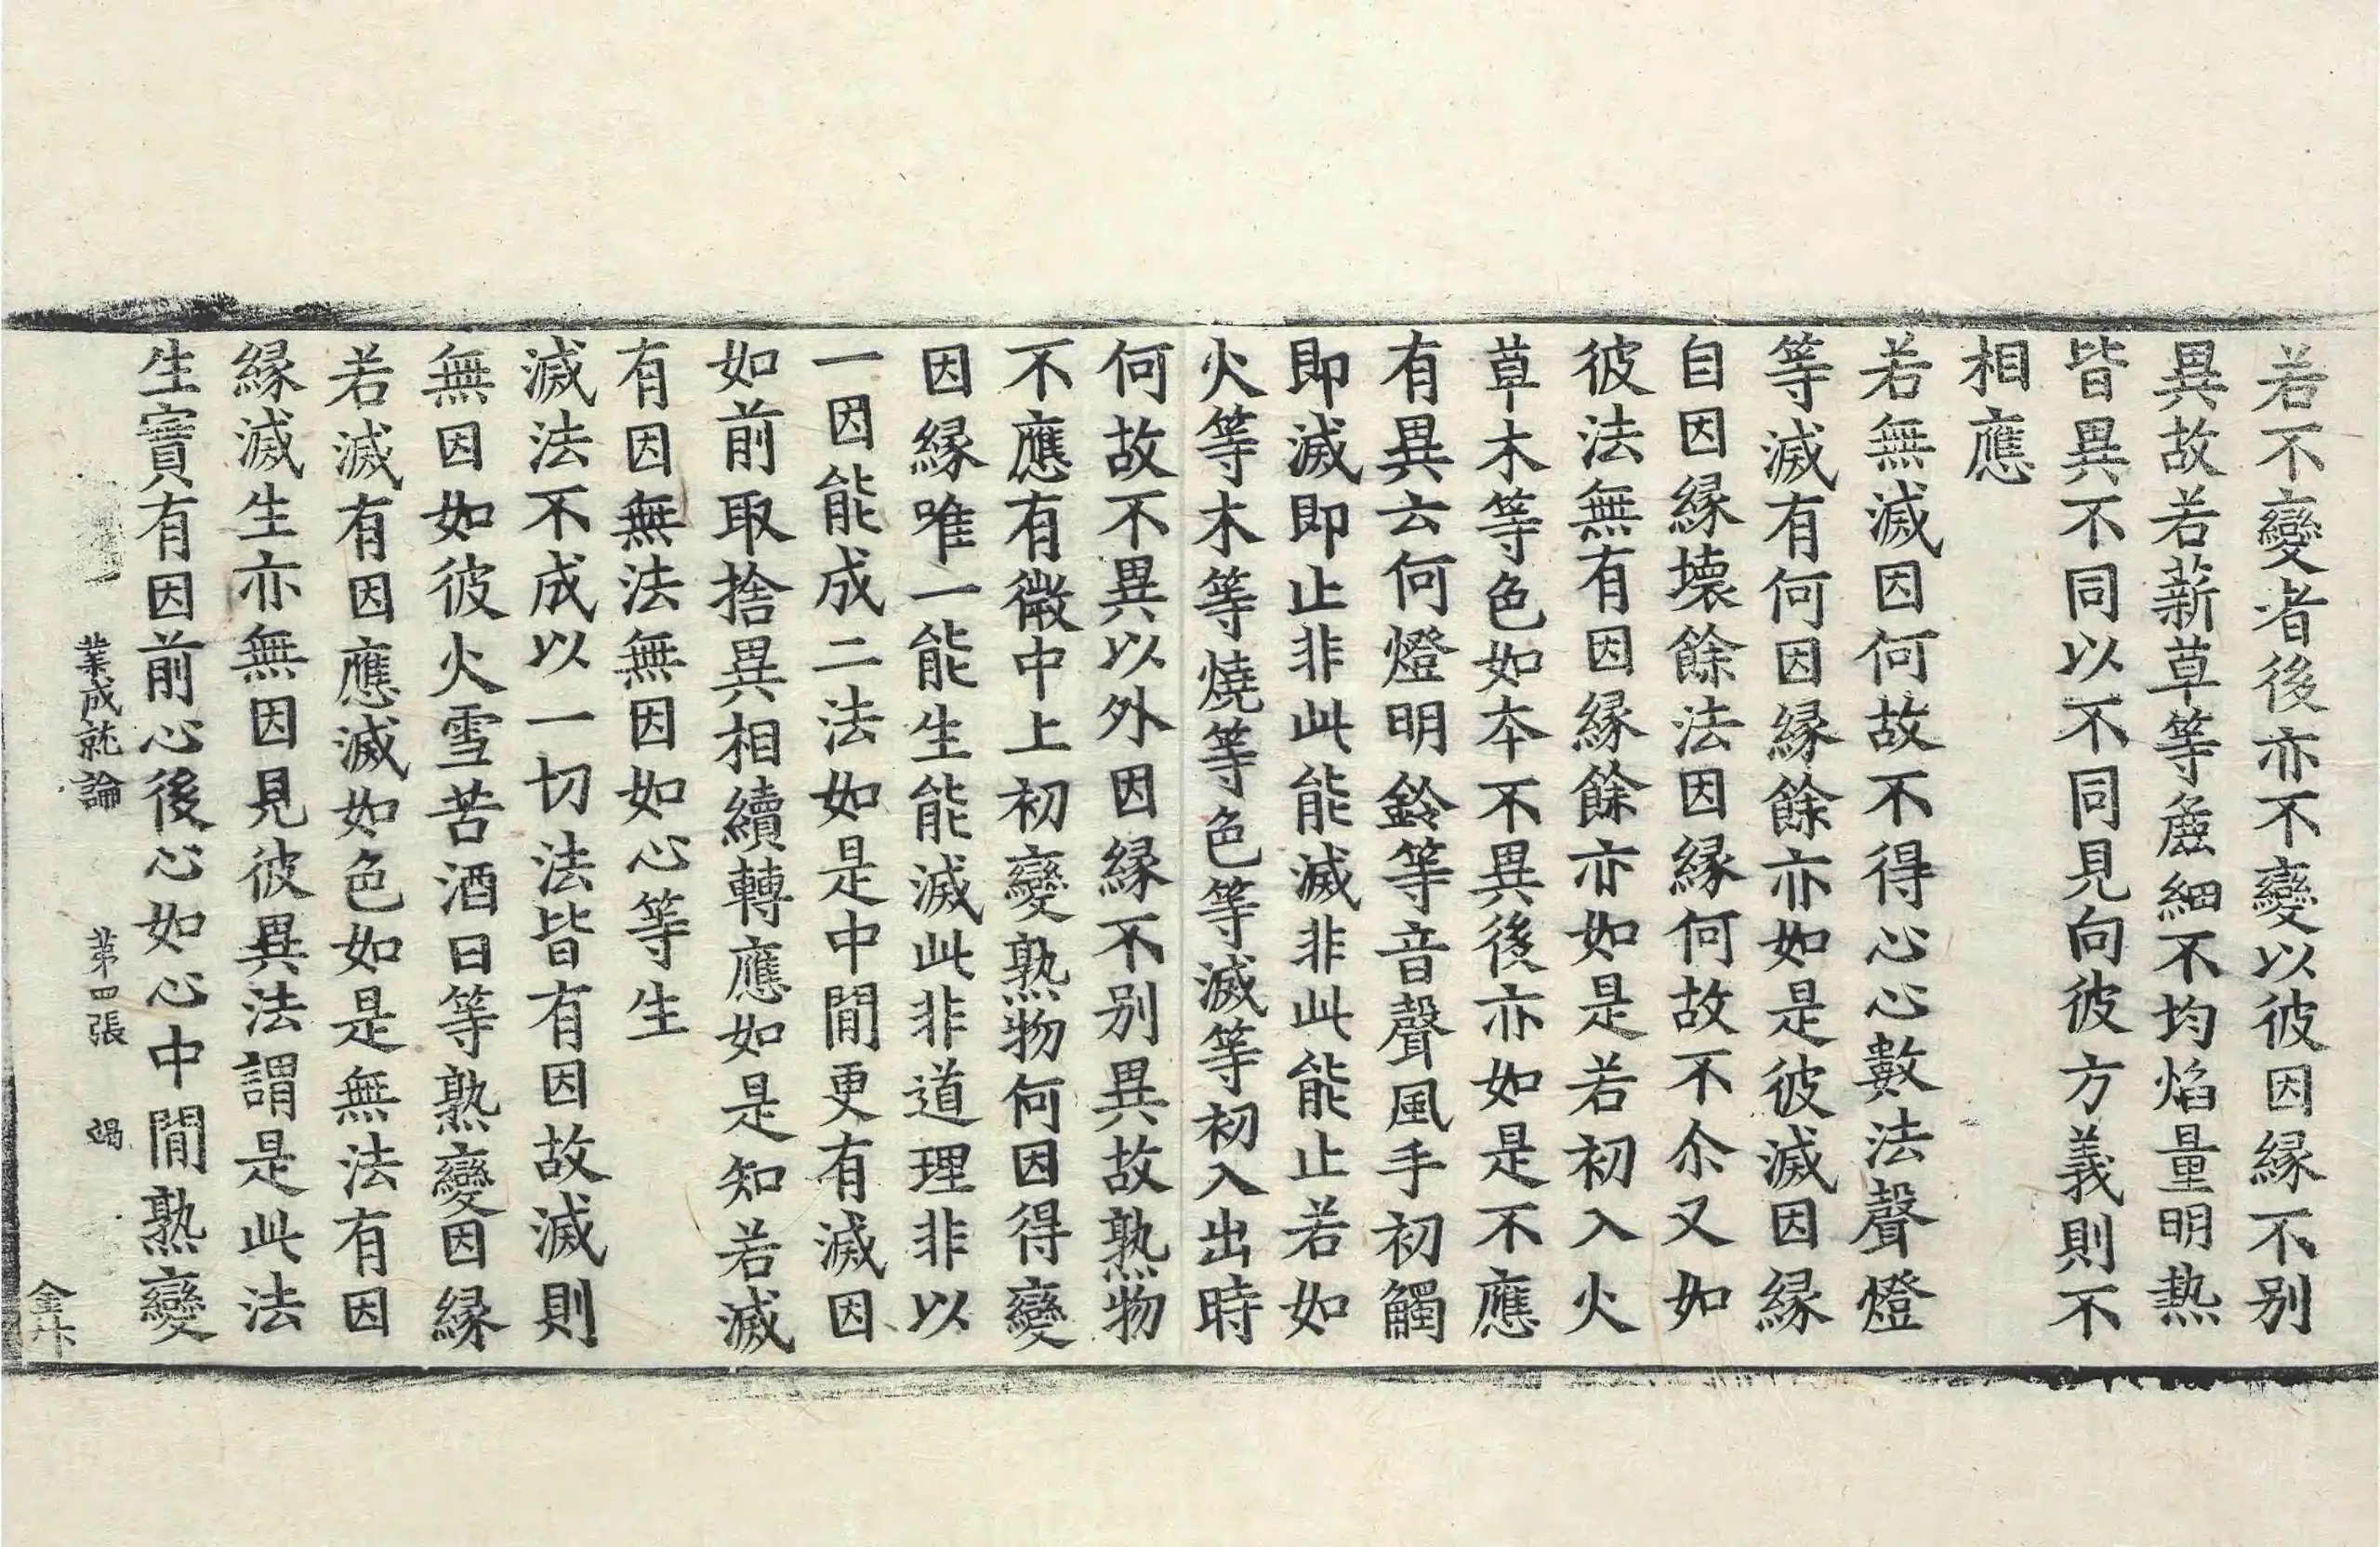 若不變者後亦不變以彼因緣不別
異故若薪草等麁細不均焰量明热
皆異不同以不同見向彼方義則不
相應
若無滅因何故不得心心數法聲燈
等滅有何因緣餘亦如是彼滅因緣
自因緣壞餘法因緣何故不尒又如
彼法無有因緣餘亦如是若初入火
草木等色如本不異後亦如是不應
有異云何燈明鈴等音聲風手初觸
即滅即止非此能滅非此能止若如
火等木等燒等色等滅等初入出時
何故不異以外因緣不別異故熟物
不應有微中上初變熟物何因得變
因緣唯一能生能滅此非道理非以
一因能成二法如是中間更有滅因
如前取捨異相續轉應如是知若滅
有因無法無因如心等生
滅法不成以一切法皆有因故滅則
無因如彼火雪苦酒日等熟變因緣
若滅有因應滅如色如是無法有因
緣滅生亦無因見彼異法謂是此法
生實有因前心後心如心中間熟變
業成就論 第四張 竭